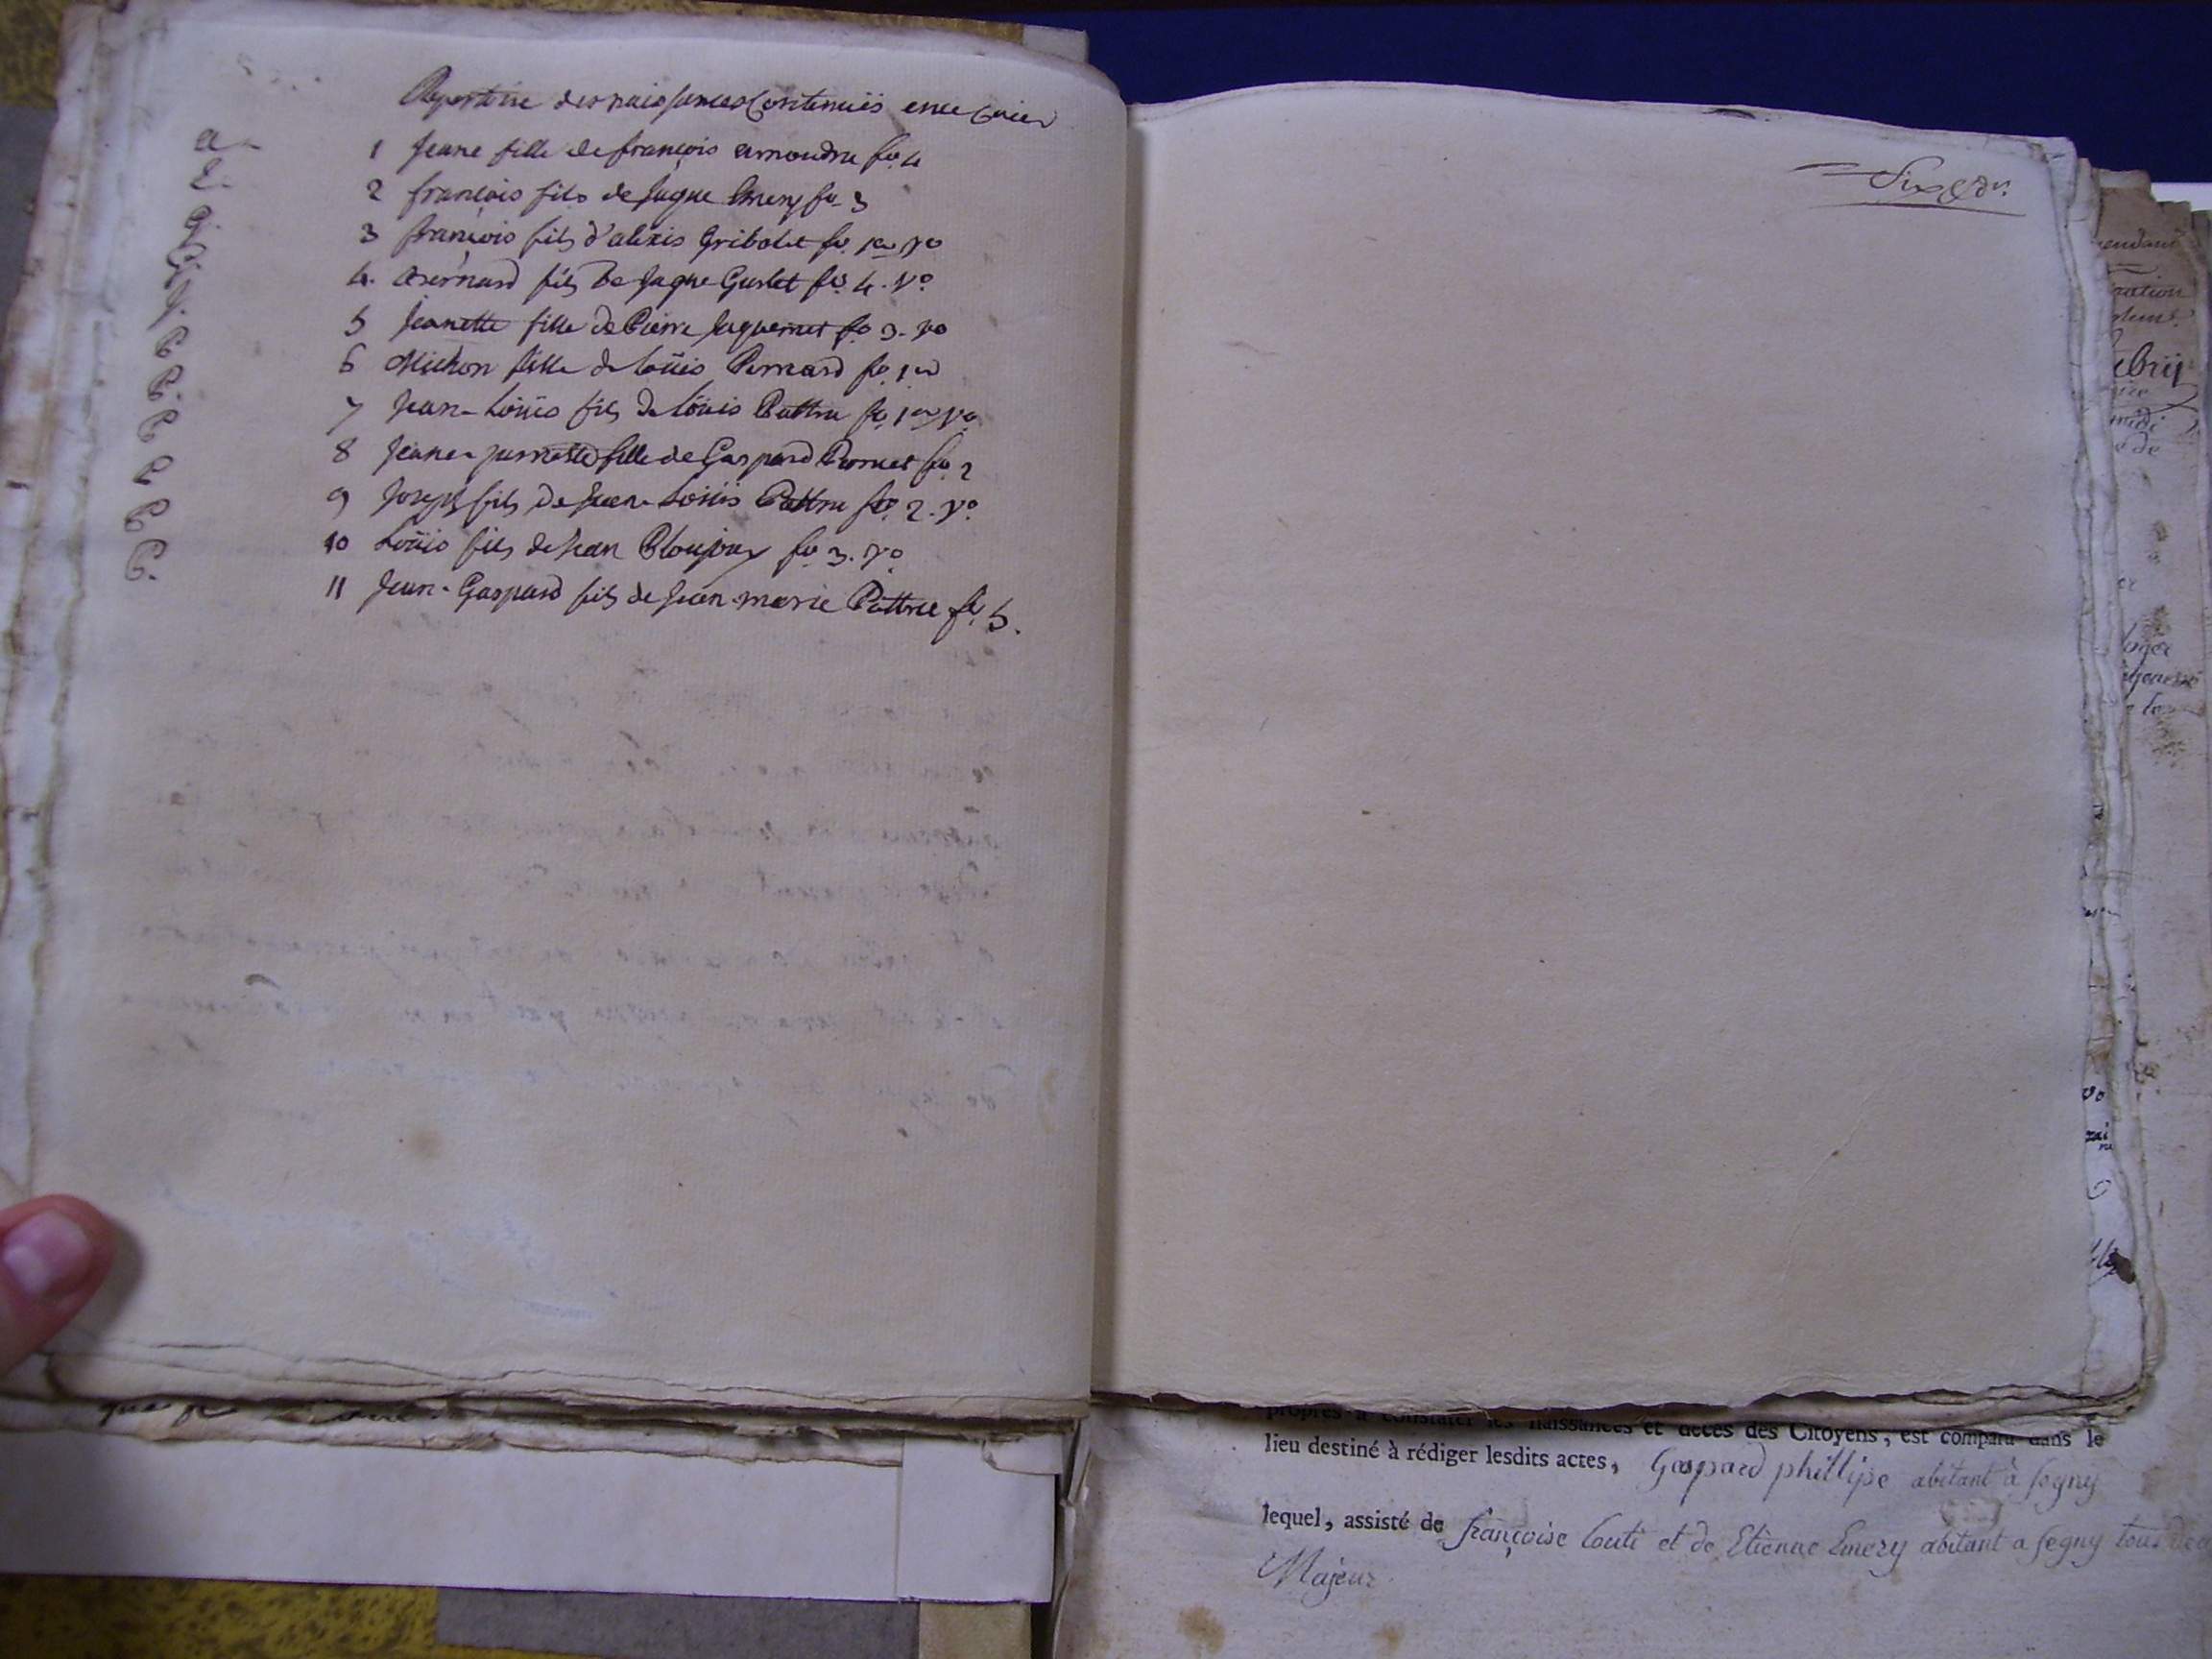 Repertoire des naissances Contenuës en ce Caier
a. 1 Jeane fille de françois amoudru fo. 4
E. 2 françois fils de Jaque Emery fo. 3
G. 3 françois fils d'alexis Gribolet fo. 1er vo
G. 4. Bernard fils De Jaque Gurlet fo. 4. vo
J. 5 Jeanette fille de Pierre Jaquemet fo 3. vo
P. 6 Michon fille de Loüis Pernard fo. 1er
P. 7 Jean-Loüis fils de Loüis Pattru fo. 1er vo
P 8 Jeane-pernette fille de Gaspard Pernet fo. 2
P 9 Joseph fils de Jean-Loüis Pattru fo. 2. vo
P 10 Loüis fils de Jean Ploujoux fo. 3. vo
P. 11 Jean-Gaspard fils de Jean-marie Pattru fo. 5.
Six
propres à constater les naissances et décès des Citoyens, est comparu dans le
lieu destiné à rédiger lesdits actes, Gaspard phillipe abitant à segny
lequel, assisté de françoise Couti et de Etienne Emery abitant a segny tous
Majeur